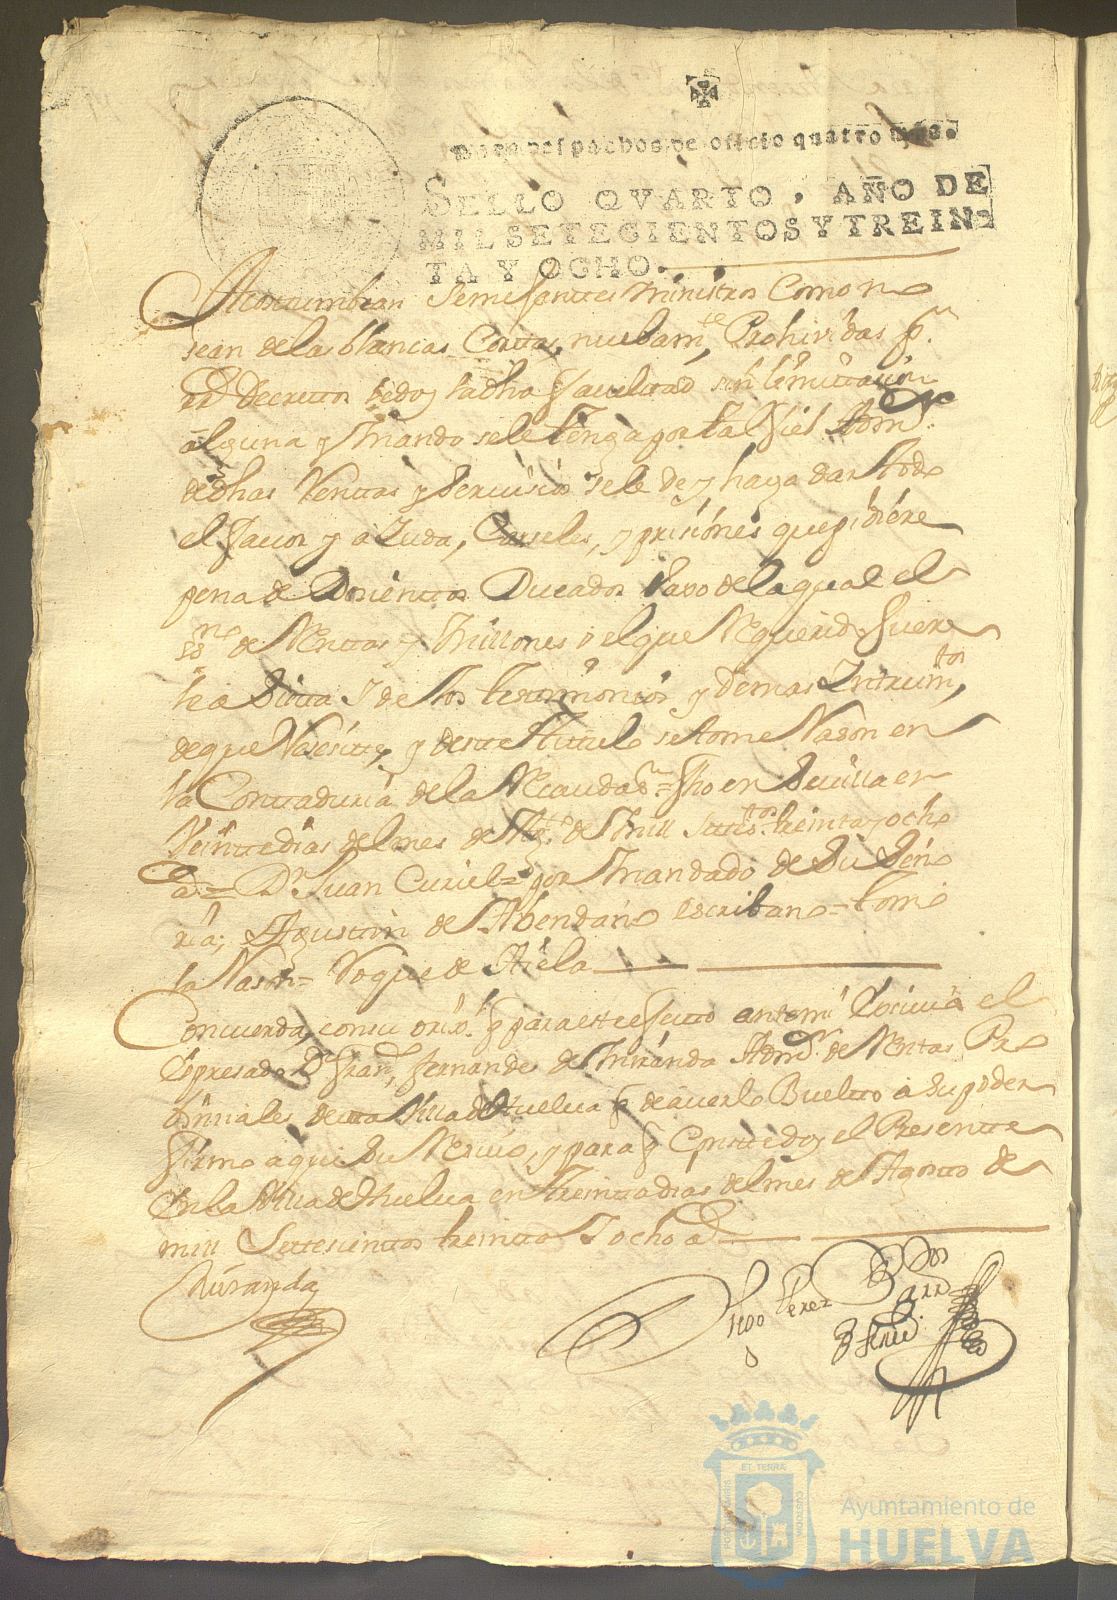 Para despachos de oficio quatro mrs.
SELLO QVARTO, AÑO DE
MIL SETECIENTOS Y TREIN
TA Y OCHO.
Acostumbran Semejantes Ministros Como no
sean de las blancas Cortas, nuebamte, Prohividas pr.
Rl Decreto le doy la dha facultad sin limitacion
alguna y Mando se le tenga por tal fiel Admr.
de dhas Rentas y Servicios se le de y haga dar todo
el favor y aiuda, Carseles, y prisiones que pidiere
pena de Doscientos Ducados vaxo de la qual el
ssno de Rentas y Millones o el que Requerido fuere
lo a
de que Nesesite, y deste titulo se tome Razon en
la Contaduria de la Recaudon = fho en Sevilla en
Veinte dias del mes de Agto de Mill Settos treinta y ocho
as = Dn Juan Curiel = por Mandado de Su Seño
ria; Agustin de Abendaño escribano = tome
la Razon = Roque de Aiela
Concuerda, con su orixl. q para este efecto ante mi Exivio el
Expresado Dn Franco, fernandes de Miranda Admr. de Rentas Pro
vinciales desta Villa de Huelva q de averlo Buelto a su poder
firmo aqui Su Recivo, y para q Conste doy el Presente
En la Villa de Huelva en treinta dias del mes de Agosto de
mill Settesientos treinta I ocho as
Miranda
Diego Perez
Ayuntamiento de
HUELVA